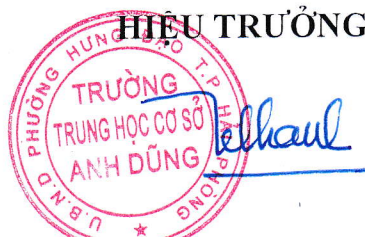 HIỆU TRƯỞNG
U.B.N.D PHƯỜNG HƯNG ĐẠO T.P HẢI PHÒNG
TRƯỜNG
TRUNG HỌC CƠ SỞ
ANH DŨNG